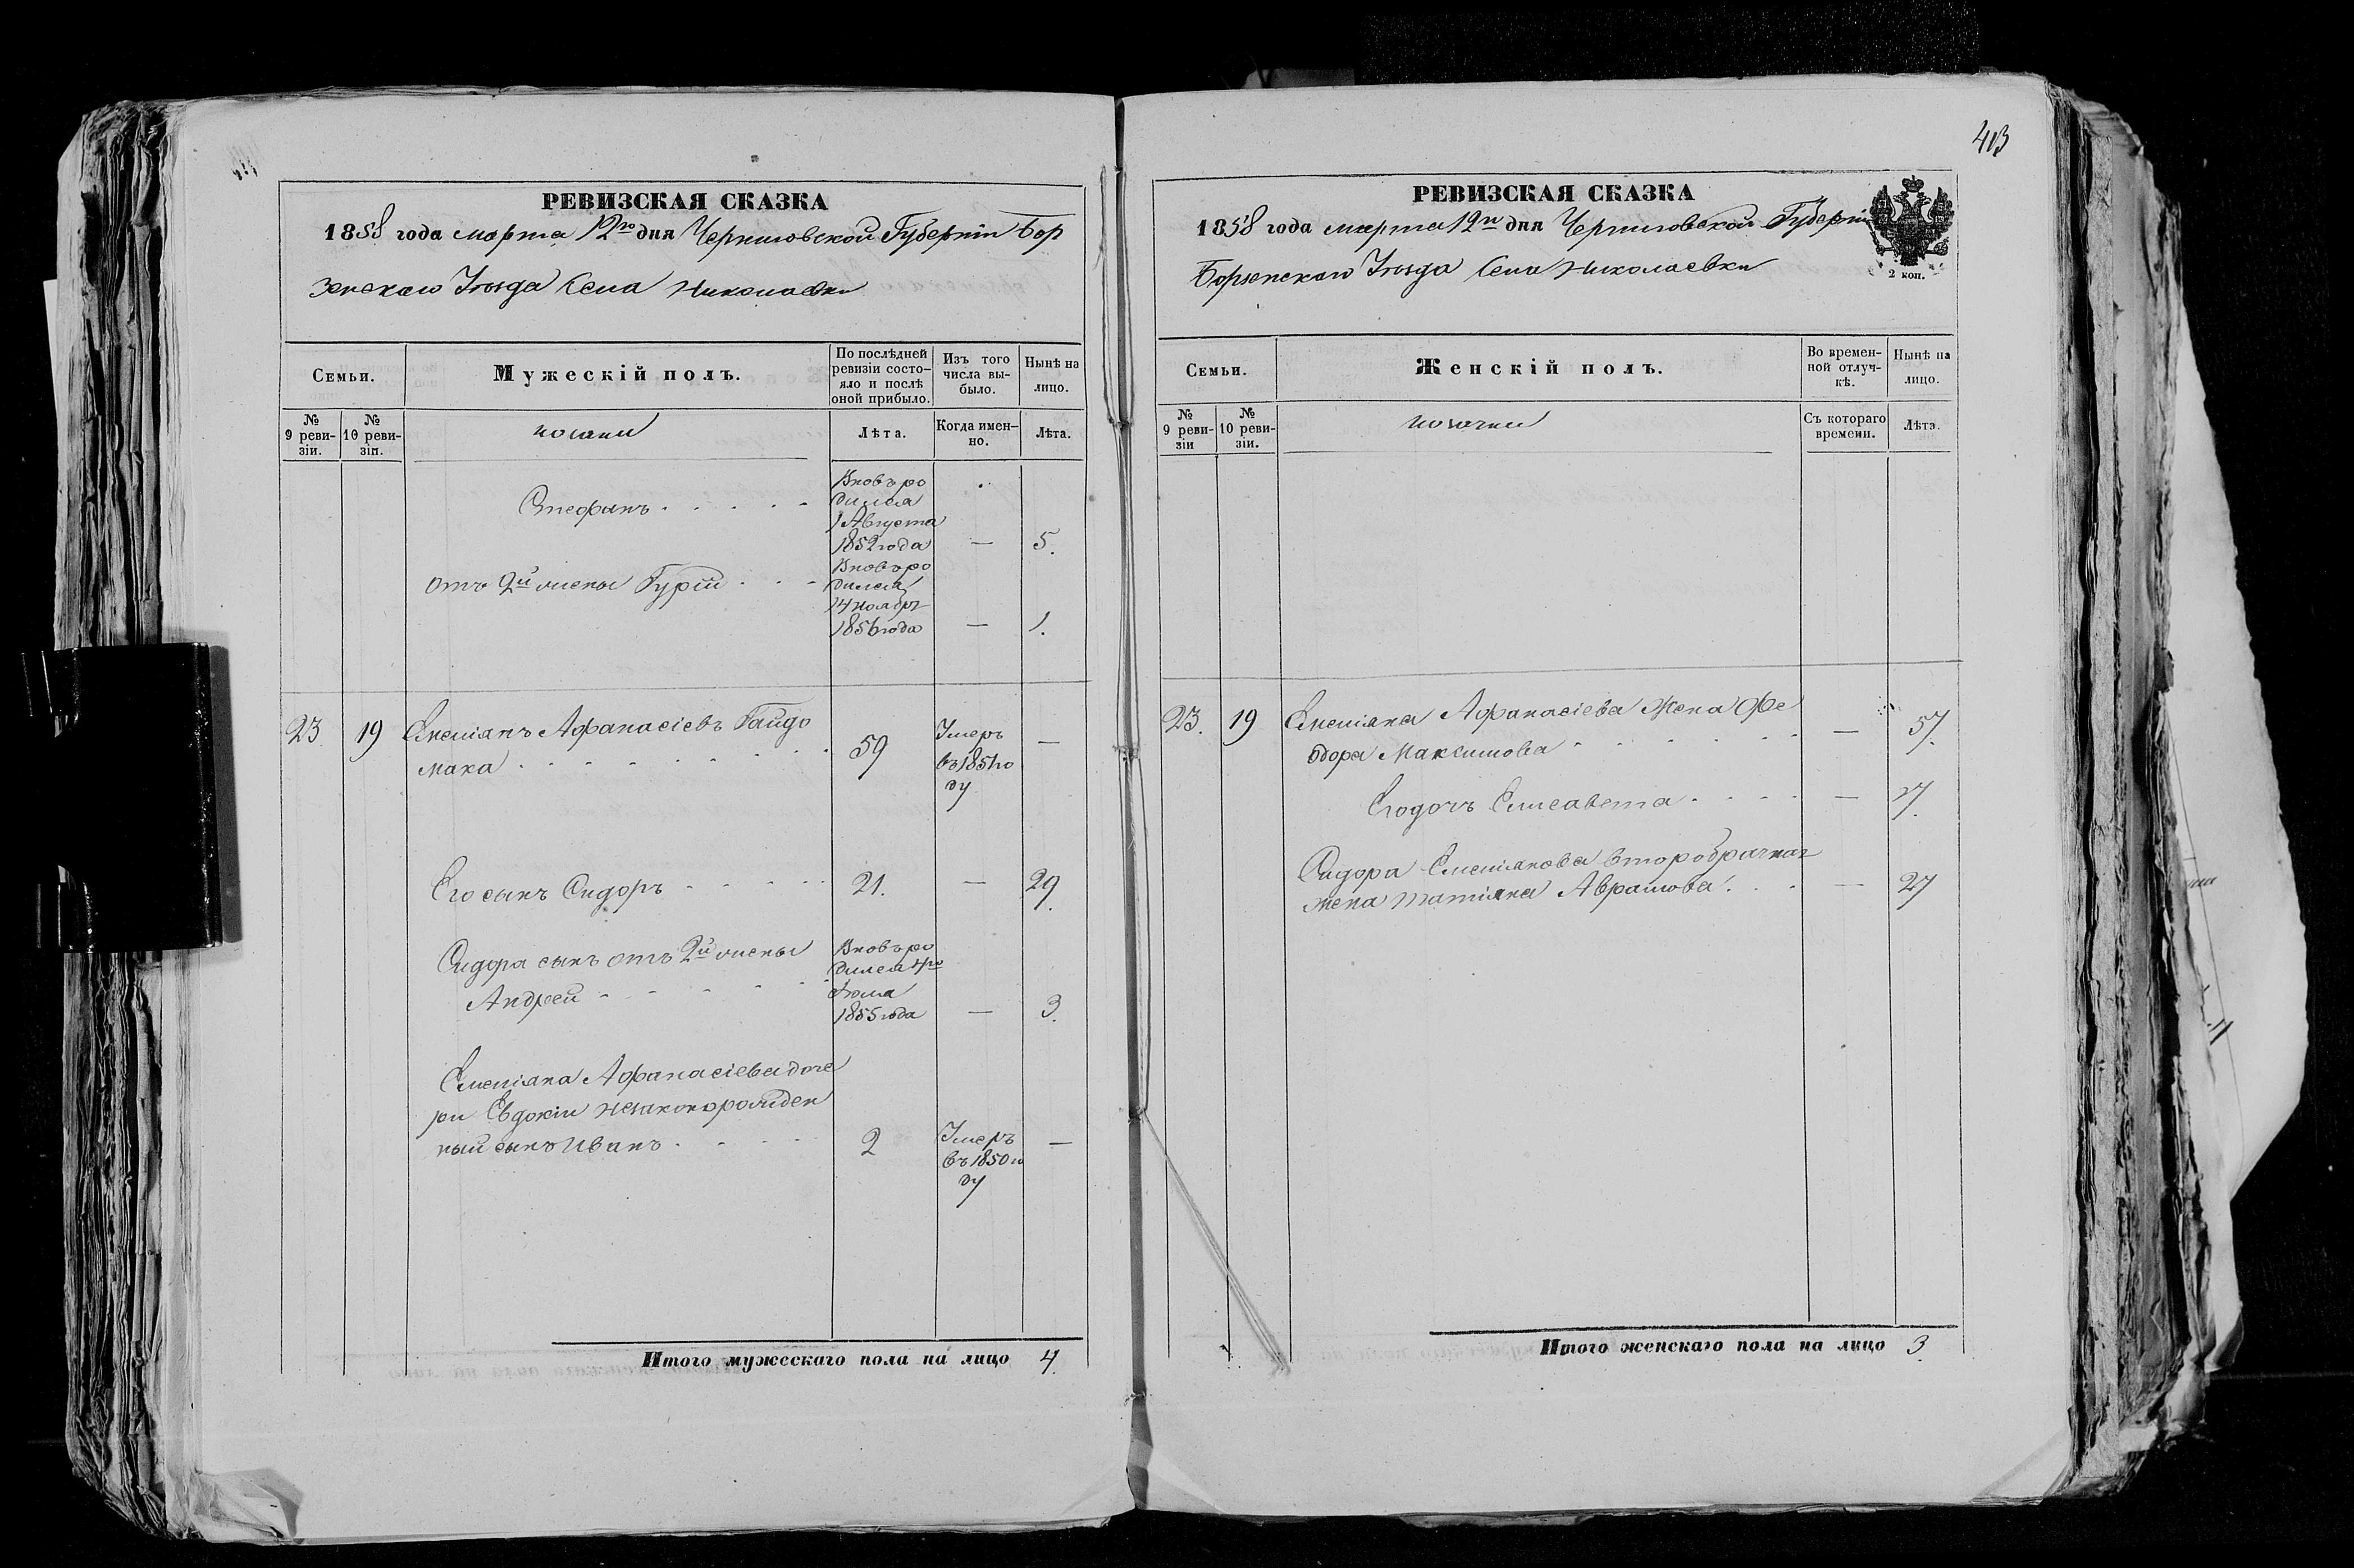 РЕВИЗСКАЯ СКАЗКА
1858 года марта 12го дня Черниговской Губерніи Бор
зенскаго Уѣзда Села Николаевки
Семьи.
Мужескій полъ.
По послѣдней
ревизіи состо-
яло и послѣ
оной прибыло.
Изъ того
числа вы-
было.
Нынѣ на
лицо.
№
9 реви-
зіи.
№
10 реви-
зіи.
козаки
Лѣта.
Когда имен-
но.
Лѣта.
Стефанъ
Вновь ро
дился
1 Августа
1852 года — 5.
отъ 2й жены Гурій
Вновь ро
дился
14 ноябр
1856 года — 1.
23 19 Емеліанъ Афанасіевъ Гайдо
мака
59
Умеръ
въ 1851 го
ду
—
Его сынъ Сидоръ 21. — 29.
Сидора сынъ отъ 2й жены
Андрей
Вновь ро
дился 4го
Іюля
1855 года — 3.
Емеліана Афанасіева доче
ри Евдокіи незаконорожден
ный сынъ Иванъ 2
Умеръ
въ 1850 го
ду
—
Итого мужескаго пола на лицо 4.
413
РЕВИЗСКАЯ СКАЗКА
1858 года марта 12го дня Черниговской Губерніи
Борзенскаго Уѣзда Села Николаевки
2 коп.
Семьи.
Женскій полъ.
Во времен-
ной отлуч-
кѣ.
Нынѣ на
лицо.
№
9 реви-
зіи
№
10 реви-
зіи.
козачки
Съ котораго
времени.
Лѣта.
23. 19 Емеліана Афанасіева жена Фе
одора Максимова — 57.
Его дочь Елисавета —
Сидора Емеліанова второбрачная
жена Татіана Аврамова. — 27
Итого женскаго пола на лицо 3.